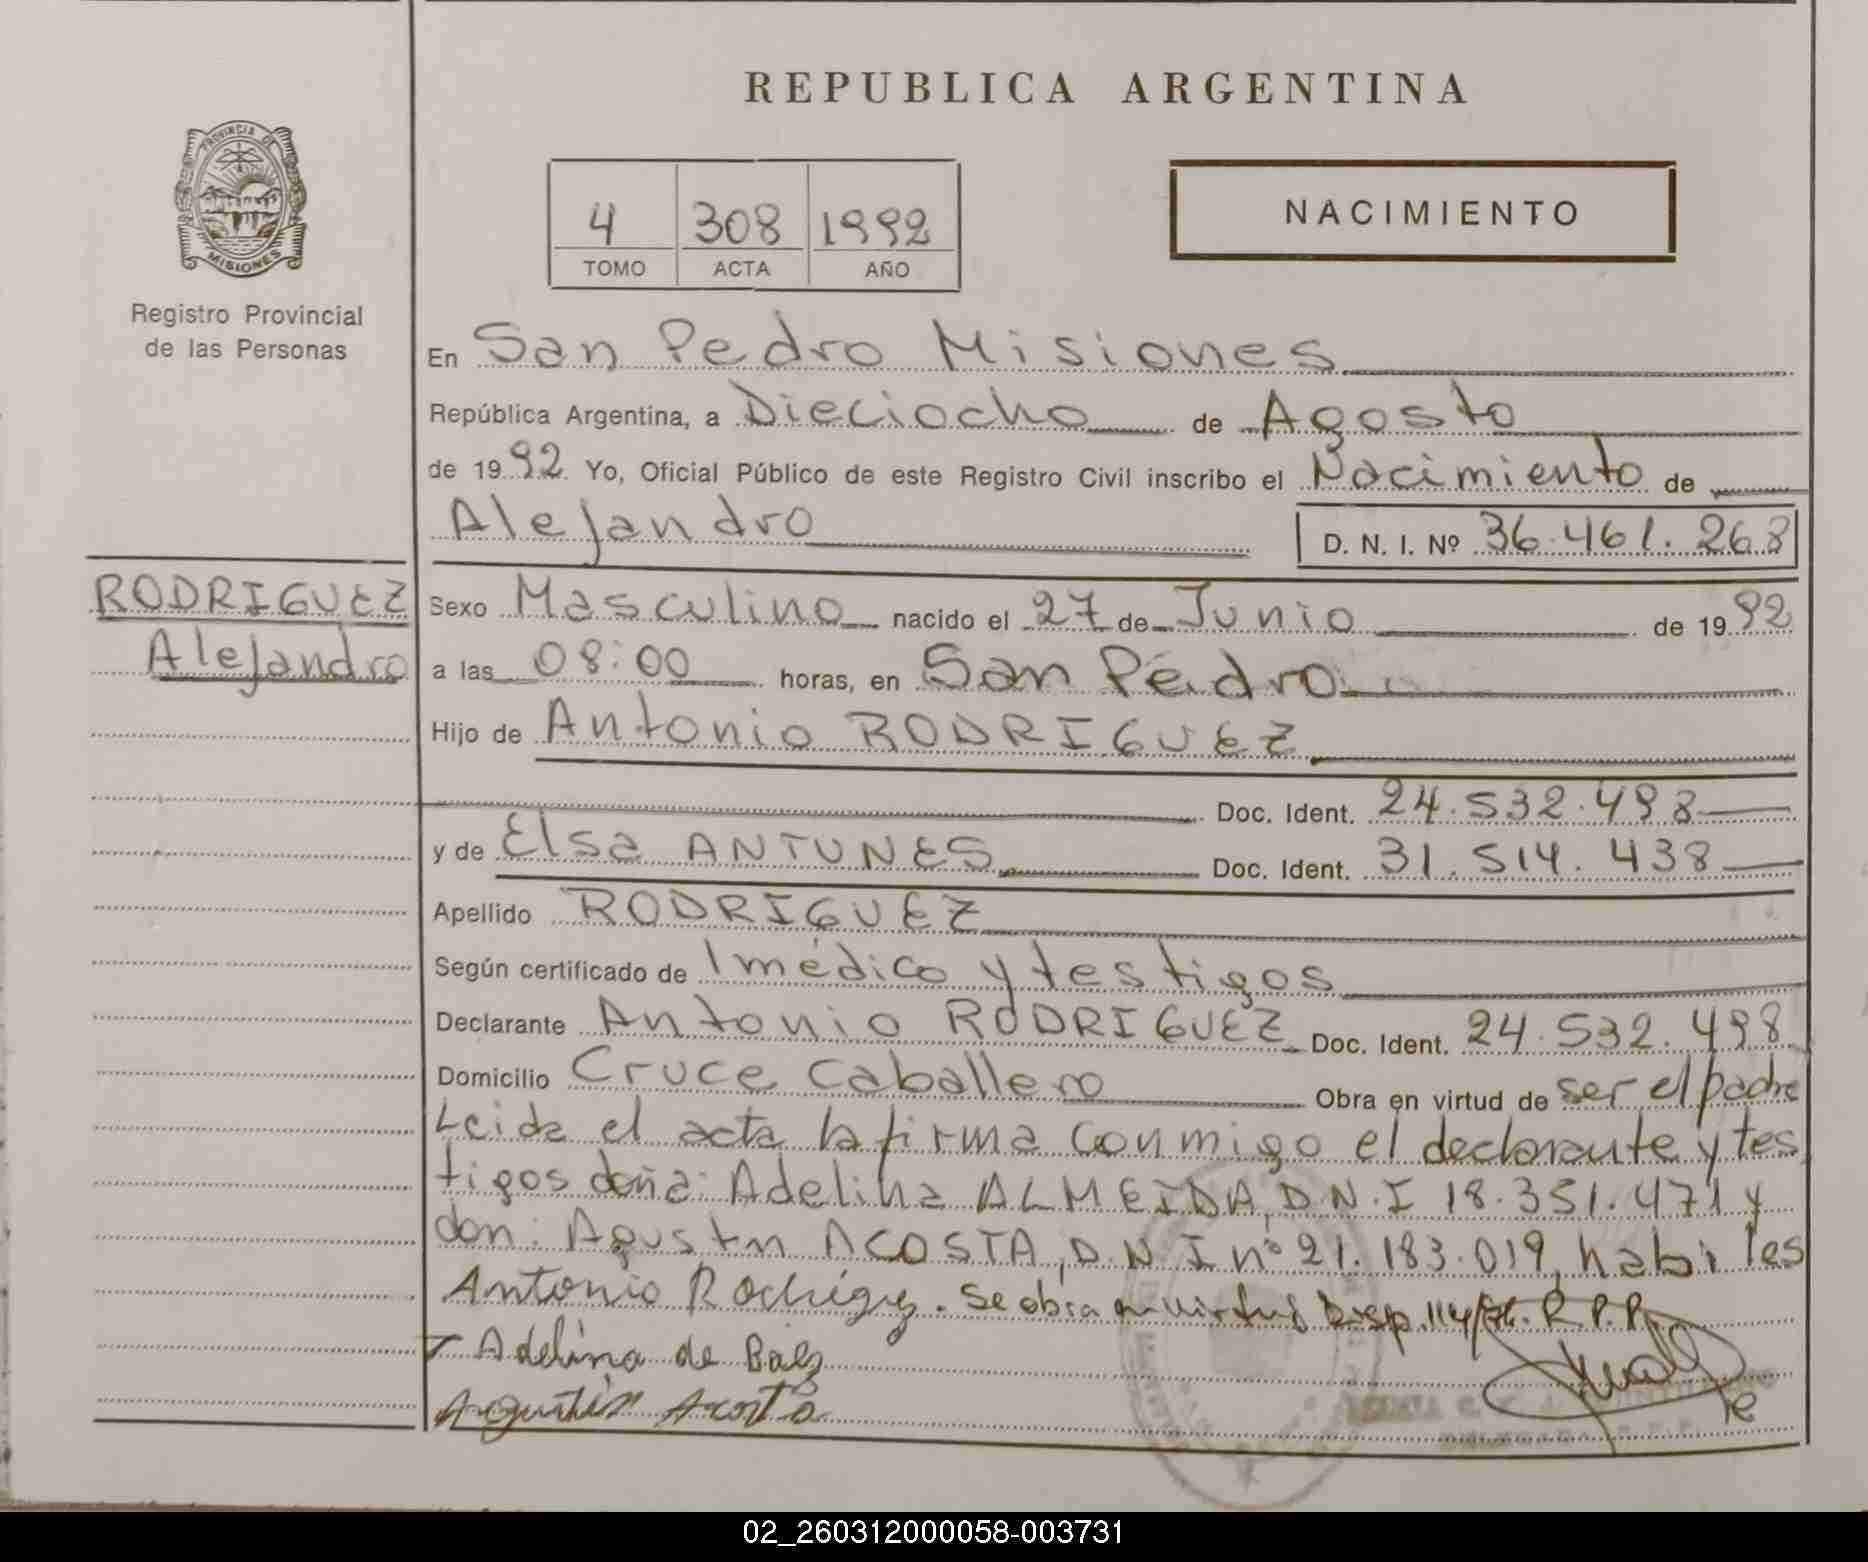 REPUBLICA ARGENTINA
PROVINCIA DE
MISIONES
Registro Provincial
de las Personas
4 308 1992
TOMO ACTA AÑO
NACIMIENTO
En San Pedro Misiones
República Argentina, a Dieciocho de Agosto
de 1992 Yo, Oficial Público de este Registro Civil inscribo el Nacimiento de
Alejandro D. N. I. Nº 36.461.268
RODRIGUEZ
Alejandro
Sexo Masculino nacido el 27 de Junio de 1992
a las 08:00 horas, en San Pedro
Hijo de Antonio RODRIGUEZ
Doc. Ident. 24.532.498
y de Elsa ANTUNES Doc. Ident. 31.514.438
Apellido RODRIGUEZ
Según certificado de 1 médico y testigos
Declarante Antonio RODRIGUEZ Doc. Ident. 24.532.498
Domicilio Cruce Caballero Obra en virtud de ser el padre
Leida el acta la firma conmigo el declarante y tes
tigos doña: Adelina ALMEIDA, D.N.I 18.351.471 y
don: Agustin ACOSTA, D.N.I nº 21.183.019, habiles
Antonio Rodriguez. Se obra en virtud Disp. 114/ R.P.P.
Adelina de Baez
Agustin Acosta
02_260312000058-003731